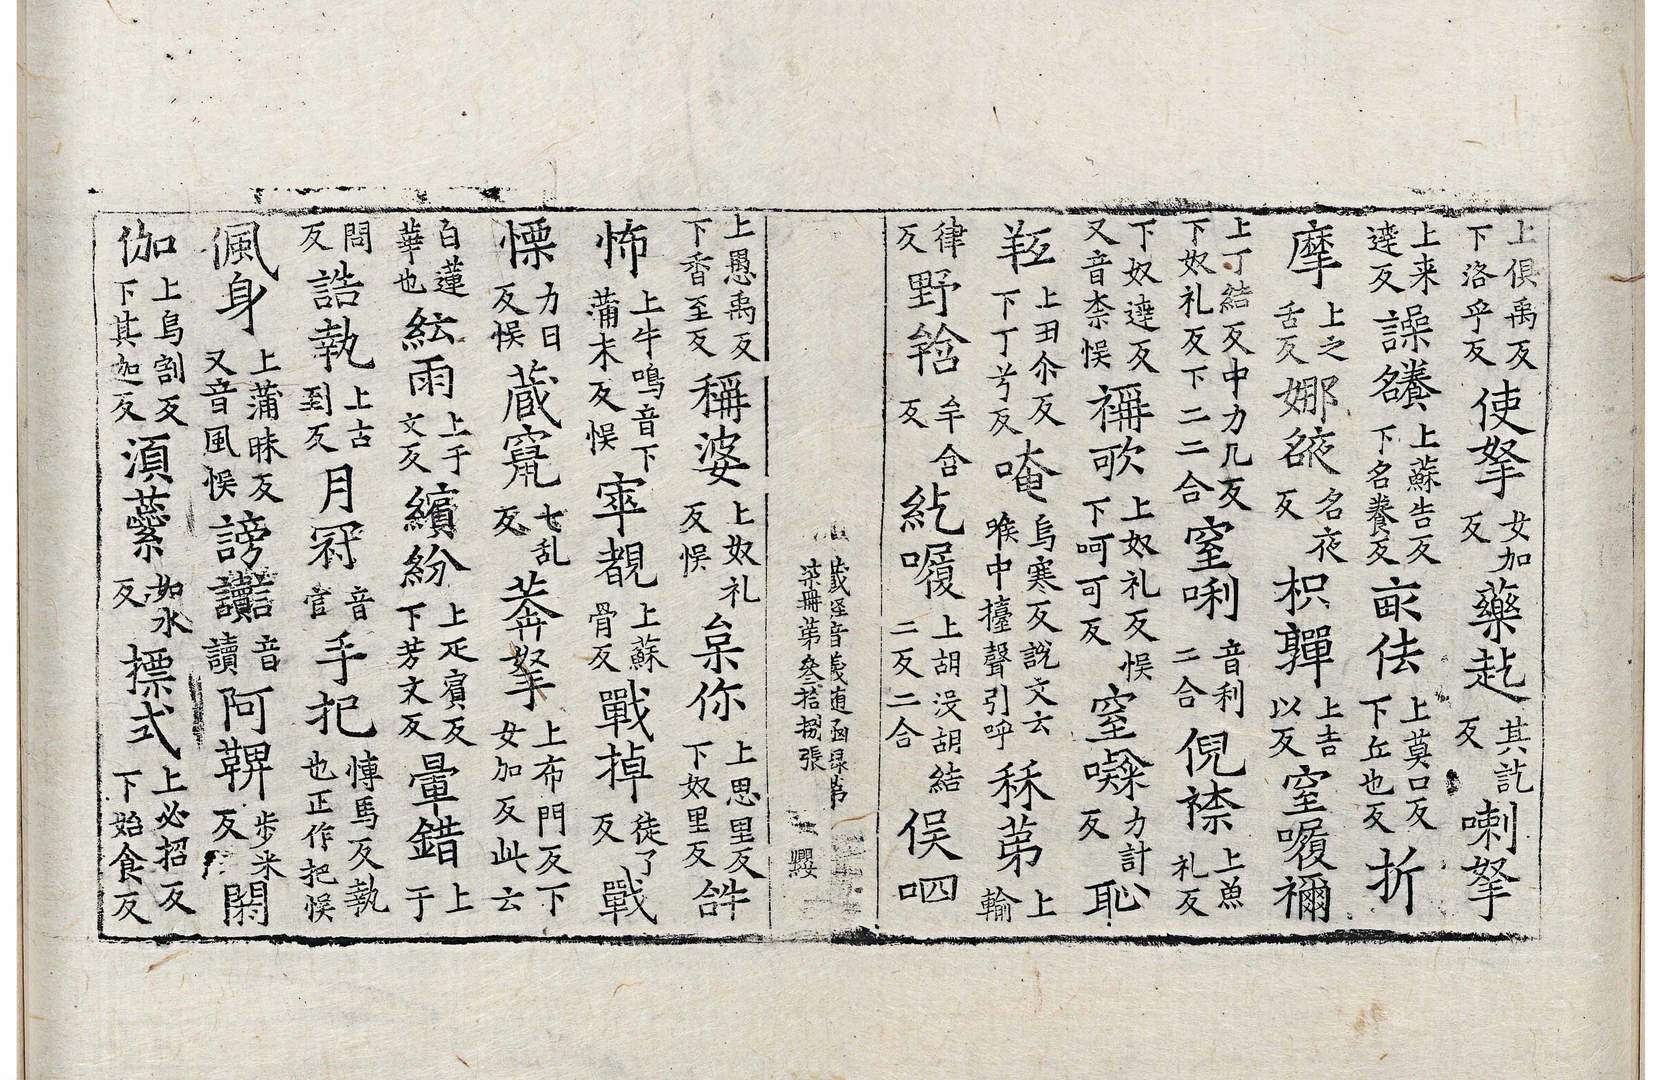 上俱禹反下洛乎反使拏女加反藥赼其訖反喇拏
上来逹反譟䭐上蘇告反下名養反㝹佉上莫口反下丘也反折
摩上之舌反娜䤳名夜反枳彈上吉以反窒㘑禰
上丁結反中力几反下奴礼反下二二合窒唎音利二合倪㯲上魚礼反
下奴達反又音柰悮禰歌上奴礼反悮下呵可反窒㘑力計反恥
羝上丑尒反下丁兮反唵烏寒反説文云喉中擡聲引呼秫苐上輸
律反野䈄牟含反紇㘑上胡没胡結二反二合俣呬
藏經音義随函録第柒冊第叁拾捌張 䙬
上愚禹反下香至反稱婆上奴礼反悮枲你上思里反下奴里反䛐
怖上牛鳴音下蒲末反悮窣覩上蘇骨反戰掉徒了反戰
慄力日反悮蔵竄七乱反莾拏上布門反下女加反此云
白蓮華也紜雨上于文反繽紛上疋賓反下芳文反暈錯上于
問反誥執上古到反月冠音官手把愽馬反執也正作把悮
偑身上蒲昧反又音風悮謗讟音讀阿鞞歩米反閼
伽上烏割反下其迦反湏蘂如水反摽式上必招反下始食反